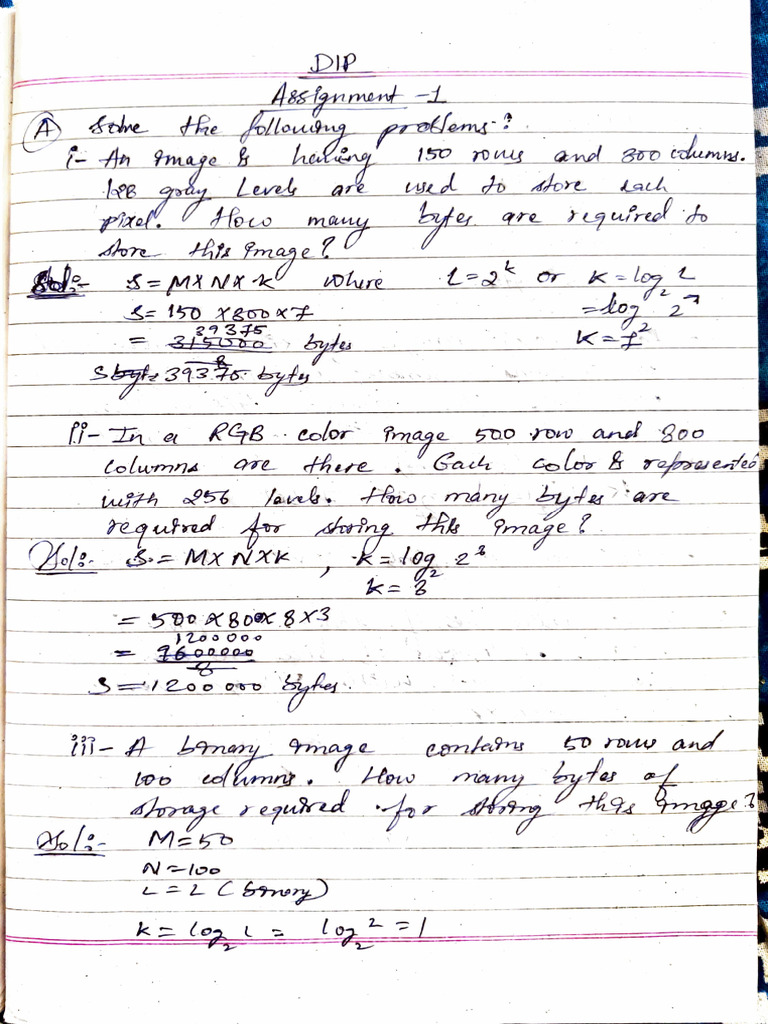 DIP
Assignment -1
(A) Solve the following problems:?
i- An image is having 150 rows and 300 columns.
128 gray levels are used to store each
pixel. How many bytes are required to
store this image?
Sol:- S = M X N X K where L = 2^k or K = log₂ L
S = 150 X 300 X 7 = log₂ 2^7
39375 K = 7
= 315000 / 8 bytes
S = 39375 bytes
ii- In a RGB color image 500 row and 800
columns are there. Each color is represented
with 256 levels. How many bytes are
required for storing this image?
Sol:- S = M X N X K, K = log₂ 2^8
K = 8
= 500 X 800 X 8 X 3
1200000
= 9600000 / 8
S = 1200000 bytes.
iii- A binary image contains 50 rows and
100 columns. How many bytes of
storage required for storing this image?
Sol:- M = 50
N = 100
L = 2 (binary)
K = log₂ L = log₂ 2 = 1